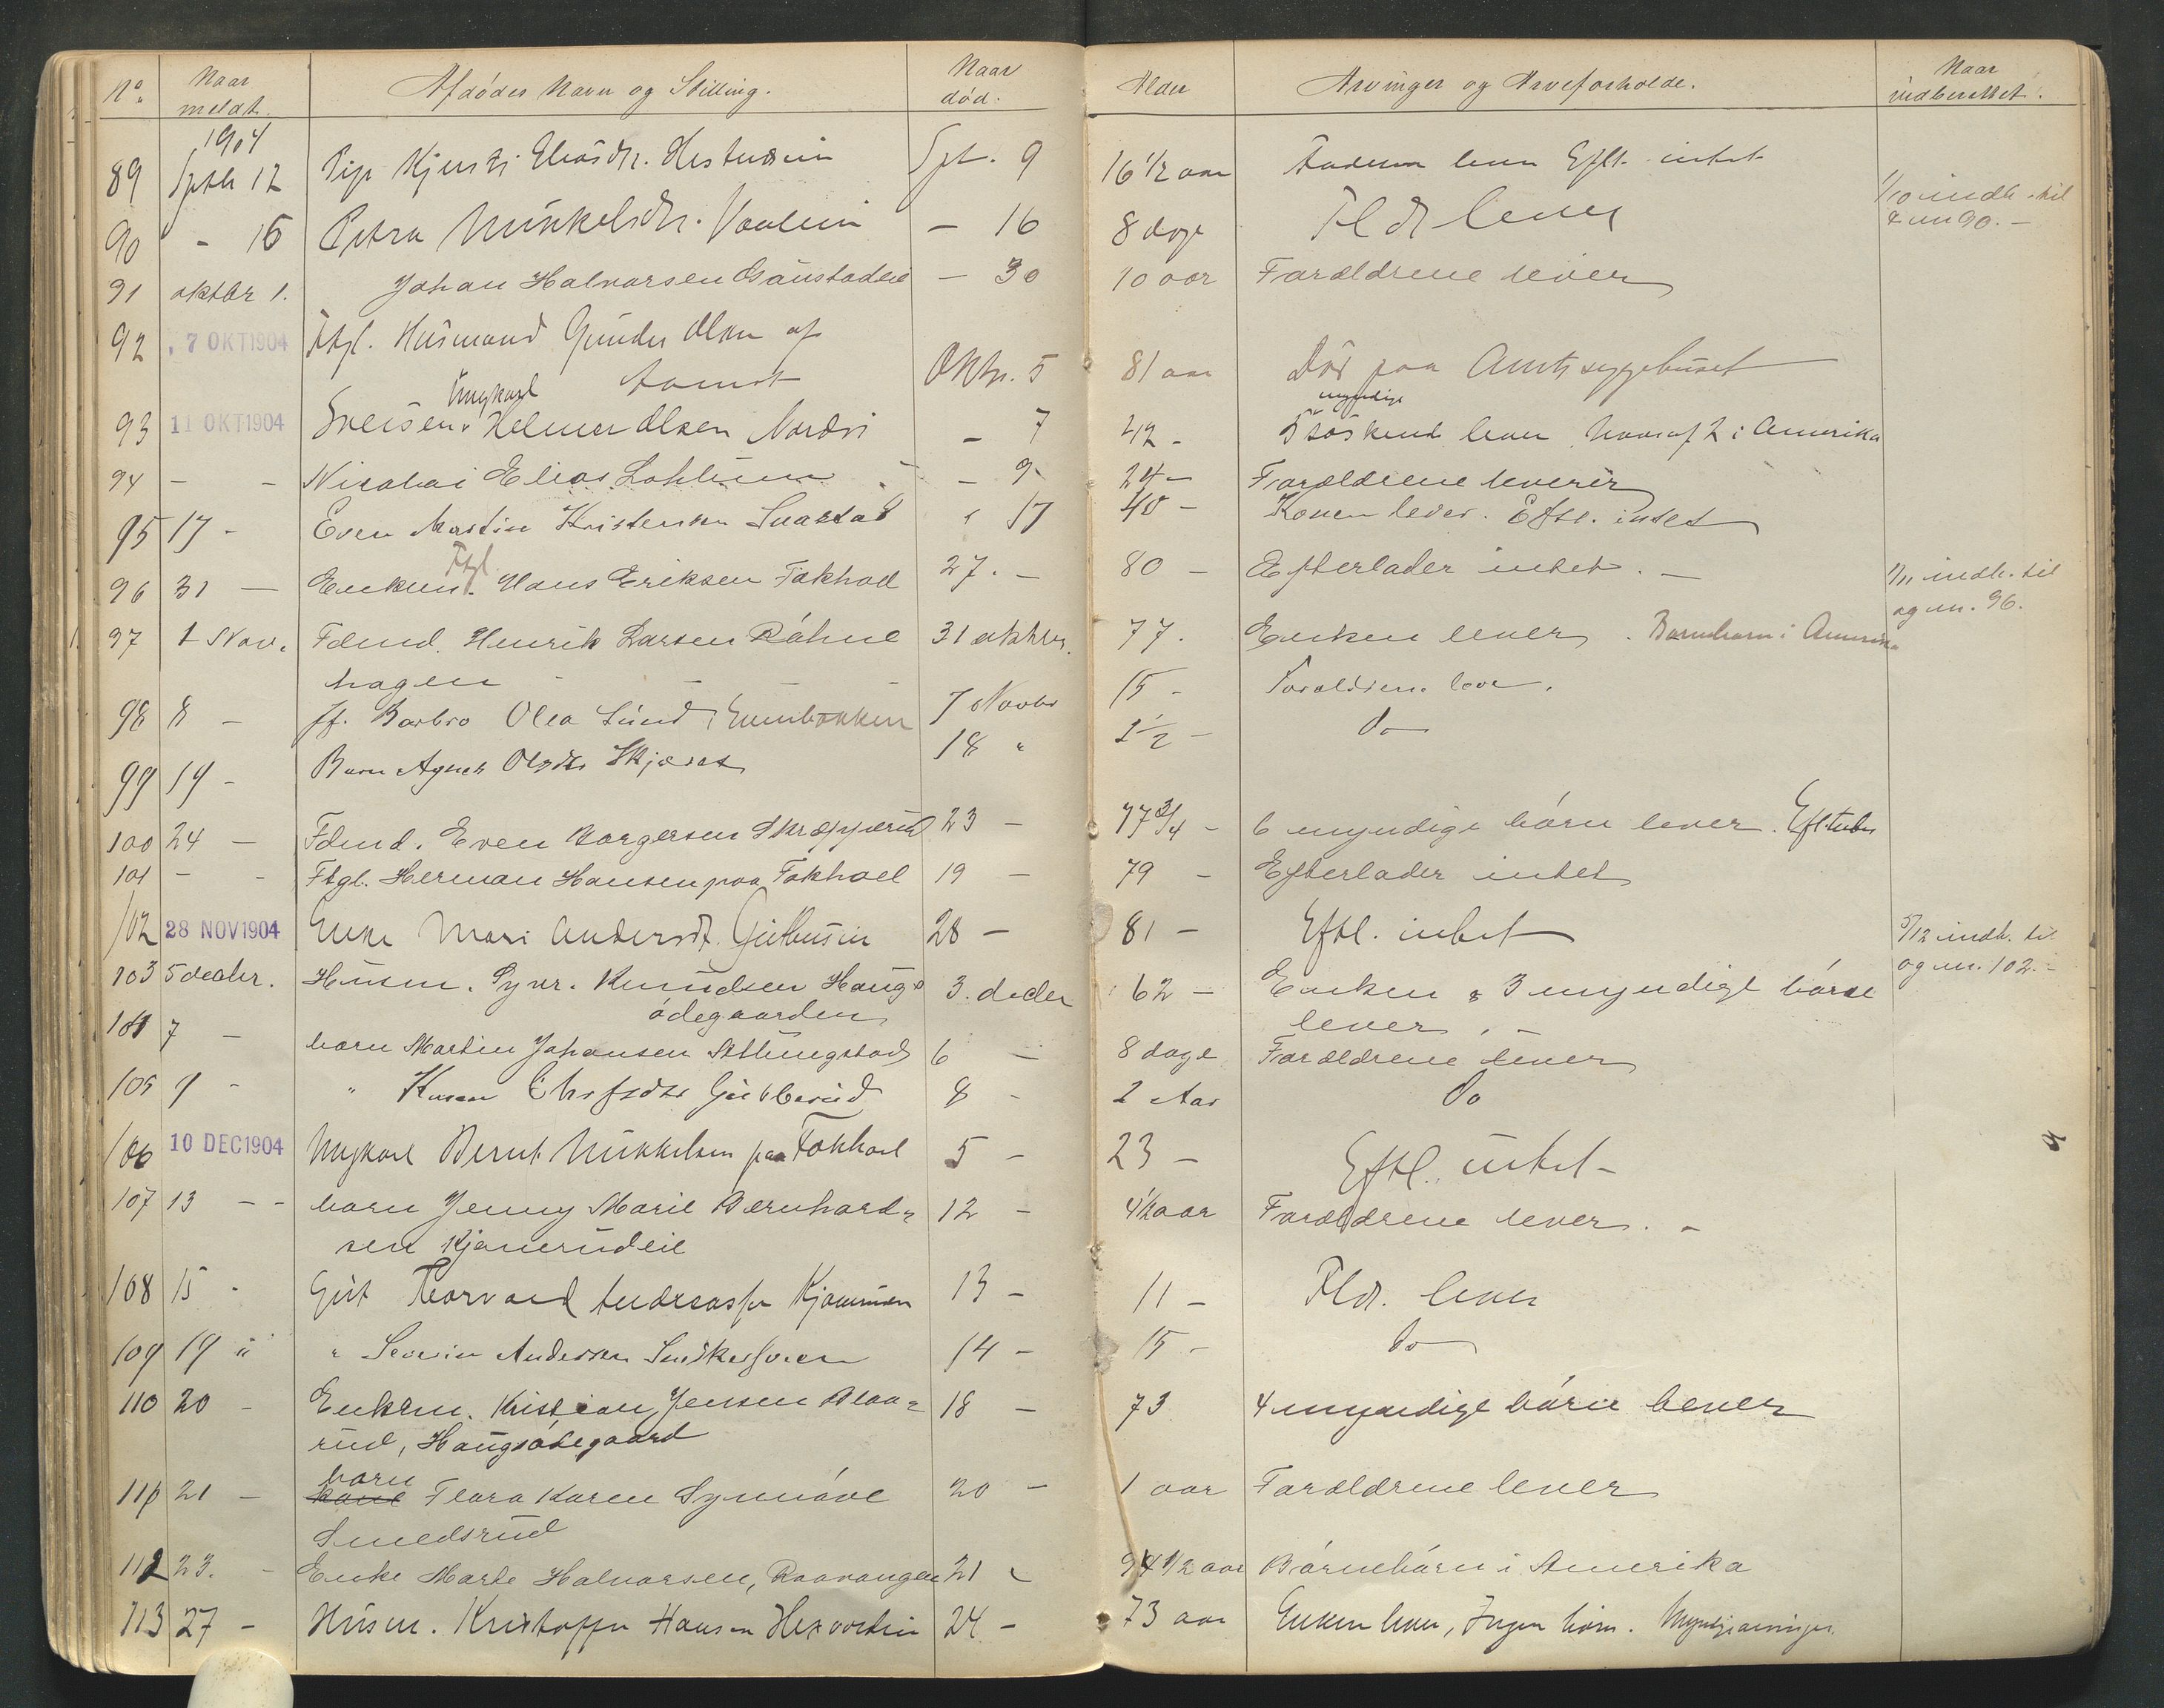 No. Naar meldt. Afdødes Navn og Stilling. Naar død. Alder Arvinger og Arveforholde. Naar indberettet.
1904
89 Sptbr 12 Pige Kjersti Eliasdtr. Spt. 9 16 1/2 aar Faderen lever Eftl. intet
90 - 16 Petra Minkelsdtr. - 16 8 dage Fldr lever
1/10 indb. til
91 oktbr 1. Johan Halvorsen - 30 10 aar Forældrene lever
92 7 OKT 1904 Ftgl. Husmand Gunder Olsen af
Oktbr. 5 81 aar Død paa Amtssygehuset
Ungkarl
myndige
93 11 OKT 1904 Helmer Olsen - 7 42 - 5 søskende lever hvoraf 2 i Amerika
94 - - Nicolai Elias - 9 24 - Forældrene leverer
95 17 - Even Martin Kristensen " 17 40 - Konen lever. Eftl. intet
Ftgl
96 31 - Enkem. Hans Eriksen Fokhol 27. - 80 - Efterlader intet. -
1/11 indb. til
og m. 96.
97 1 Nov. Fdmd. Henrik Larsen 31 oktbr. 77. Enken lever. Barnebarn i Amerika
hagen
98 8 - ff. Barbro Olea Lund, 7 Novbr 15 - Forældrene lever.
99 19 - Barn Agnes Olsdtr Skjæret 18 " 1 1/2 - Do
100 24 - Fdmd. Even Borgersen Skræpperud 23 - 77 3/4 - 6 myndige børn lever.
101 - - Ftgl. Herman Hansen paa Fokhol 19 - 79 - Efterlader intet
102 28 NOV 1904 Enke Mari Andersdt. Guthusein 28 - 81 - Eftl. intet
5/12 indb. til
og m. 102. -
103 5 decbr. Husm. Syver. Knudsen Haugs 3. decbr 62 - Enken & 3 myndige børn
ødegaarden lever. -
104 7 - barn Martin Johansen Attungstad 6 - 8 dage Forældrene lever
105 9 - " Karen 8 - 2 Aar Do
106 10 DEC 1904 Ungkarl Bernt Mikkelsen paa Fokhol 5 - 23 - Eftl. intet -
107 13 - - barn Jenny Marie Bernhard- 12 - 4 1/2 aar Forældrene lever. -
sen Kjonerudeie
108 15 - Gut Thorvald Andreassen 13 - 11 - Fldr. lever
109 19 " " Severin Andersen 14 - 15 - Do
110 20 - Enkem. Kristian Jensen Blaa- 18 - 73 4 myndige børn lever
rud, Haugsødegaard
barn
111 21 - kone Flora Karen Synnøve 20 - 1 aar Forældrene lever
Smedsrud
112 23. - Enke Marte Halvorsen, Raavangen 21 " 94 1/2 aar Børnebørn i Amerika
113 27 - Husm. Kristoffer Hansen 24 - 73 aar Enken lever, Ingen børn.